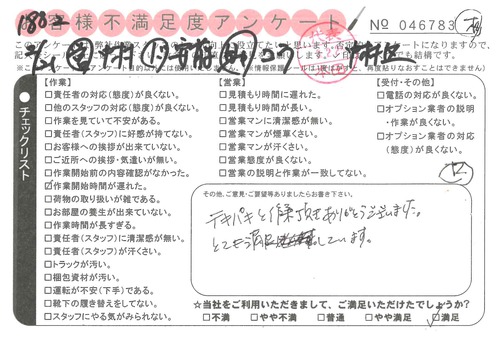 お客様不満足度アンケート
№ 046783
【作業】
□責任者の対応(態度)が良くない。
□他のスタッフの対応(態度)が良くない。
□作業を見ていて不安がある。
□責任者(スタッフ)に好感が持てない。
□お客様への挨拶が出来ていない。
□ご近所への挨拶・気遣いが無い。
□作業開始前の内容確認がなかった。
□作業開始時間が遅れた。
□荷物の取り扱いが雑である。
□お部屋の養生が出来ていない。
□作業時間が長すぎる。
□責任者(スタッフ)に清潔感が無い。
□責任者(スタッフ)が汗くさい。
□トラックが汚い。
□梱包資材が汚い。
□運転が不安(下手)である。
□靴下の履き替えをしてない。
□スタッフにやる気がみられない。
【営業】
□見積もり時間に遅れた。
□見積もり時間が長い。
□営業マンに清潔感が無い。
□営業マンが煙草くさい。
□営業マンが汗くさい。
□営業態度が良くない。
□営業の説明と作業が一致してない。
【受付・その他】
□電話の対応が良くない。
□オプション業者の説明
・作業が良くない。
□オプション業者の対応
(態度)が良くない。
●チェックリスト
その他、ご意見・ご要望等ありましたらお書き下さい。
テキパキと作業頂きありがとうございます。
とても満足しています。
☆当社をご利用いただきまして、ご満足いただけたでしょうか?
□不満 □やや不満 □普通 □やや満足 □満足